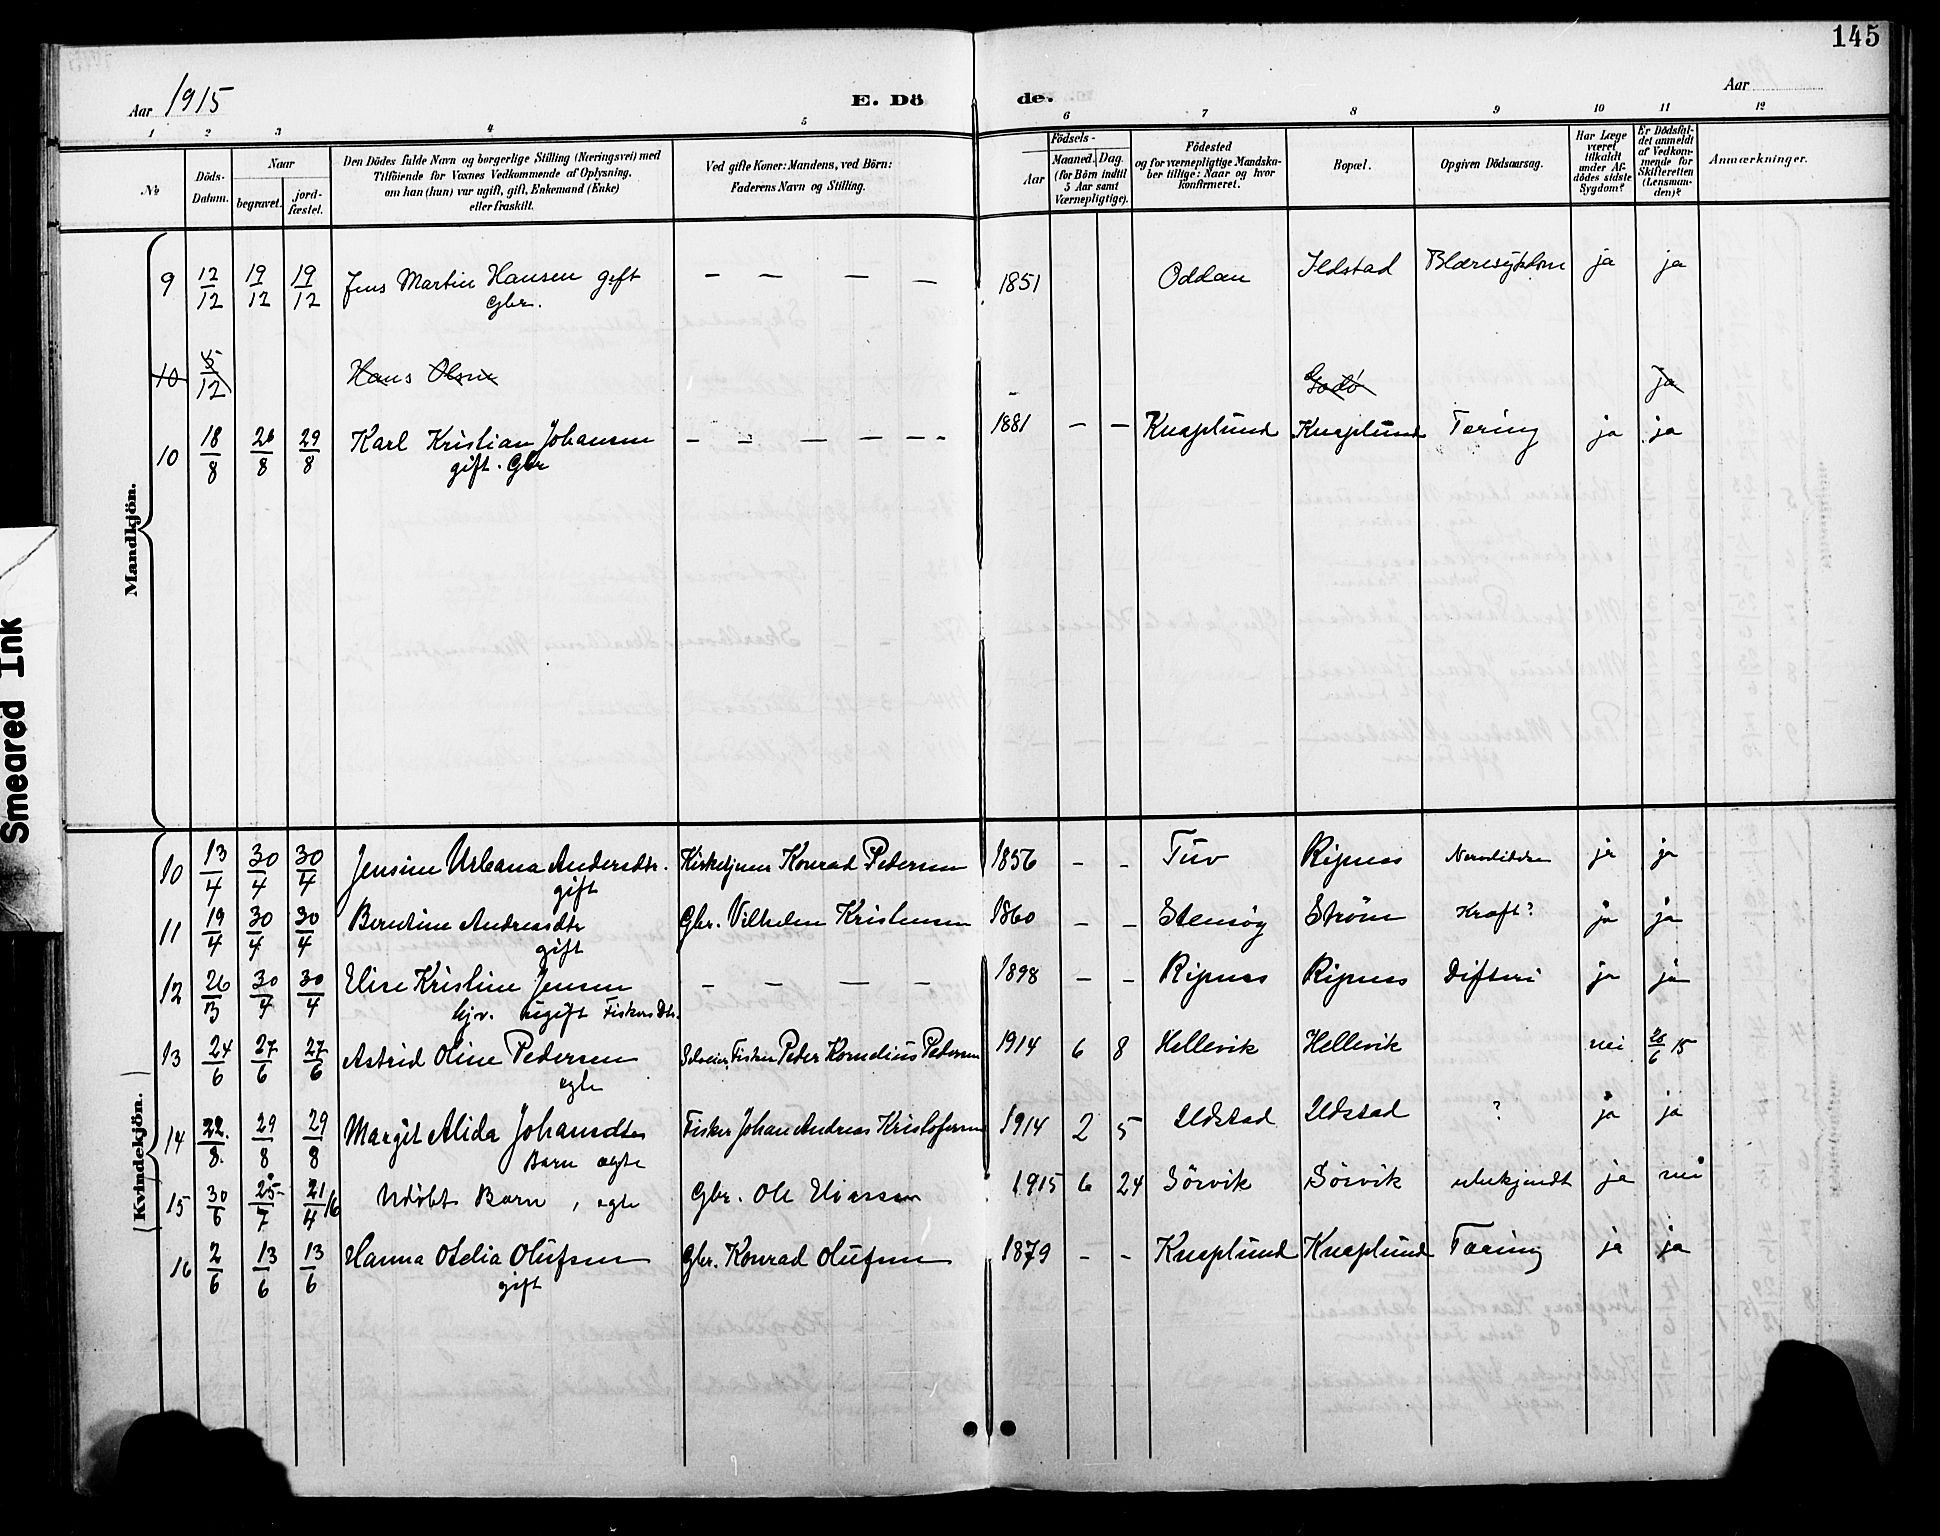 145
Aar 1915
E. Döde.
Aar
1 2 3 4 5 6 7 8 9 10 11 12
No
Döds-Datum.
Naar
begravet.
jord-fæstet.
Den Dödes fulde Navn og borgerlige Stilling (Næringsvei) med
Tilföiende for Voxnes Vedkommende af Oplysning,
om han (hun) var ugift, gift, Enkemand (Enke)
eller fraskilt.
Ved gifte Koner: Mandens, ved Börn:
Faderens Navn og Stilling.
Födsels-
Aar
Maaned. Dag.
(for Börn indtil
5 Aar samt
Værnepligtige).
Födested
og for værnepligtige Mandska-
ber tillige: Naar og hvor
konfirmeret.
Bopæl.
Opgiven Dödsaarsag.
Har Læge
været
tilkaldt
under Af-
dödes sidste
Sygdom?
Er Dödsfal-
det anmeldt
af Vedkom-
mende for
Skifteretten
(Lensman-
den)?
Anmærkninger.
Mandkjön.
9 12/12 19/12 19/12 Jens Martin Hansen gift — — — — 1851 Oddan Ildstad Blæresykdom ja ja
Gbr.
10 5/12 Hans Olsen Godö ja
10 18/8 26/8 29/8 Karl Kristian Johansen — — — — — 1881 — — Knaplund Knaplund Tæring ja ja
gift. Gbr
Kvindekjön.
10 13/4 30/4 30/4 Jensine Urbana Andersdtr. Kirketjener Konrad Pedersen 1856 — — Tuv Ripnes ja ja
gift
11 19/4 30/4 30/4 Berntine Andreasdtr Gbr. Vilhelm Kristensen 1860 — — Stensög Ström Kræft? ja ja
gift
12 26/3 30/4 30/4 Elise Kristine Jensen — — — — 1898 — — Ripnes Ripnes Difteri ja ja
hjv. ugift Fiskers Dtr.
13 24/6 27/6 27/6 Astrid Oline Pedersen Fisker Peder Kornelius Pedersen 1914 6 8 Hellevik Hellevik nei 28/6 15
egte
14 22/8 29/8 29/8 Margit Alida Johansdtr Fisker Johan Andreas Kristofersen 1914 2 5 Ildstad Ildstad ? ja ja
Barn ægte
15 30/6 25/7 21/4 16 Udöbt Barn, egte Gbr. Ole Eliassen 1915 6 24 Sörvik Sörvik ubekjendt ja nei
16 2/6 13/6 13/6 Hanna Otelia Olufsen Gbr. Konrad Olufsen 1879 — — Knaplund Knaplund Tæring ja ja
gift
Smeared Ink